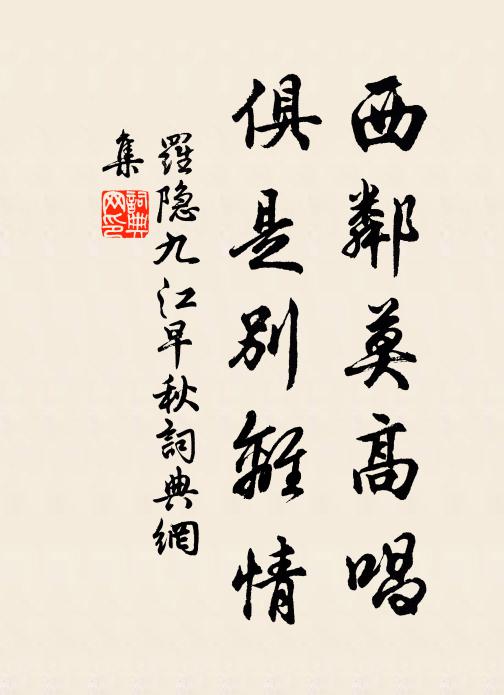 西鄰莫高唱
俱是別離情
羅隐九江早秋詞典網
集
詞典網印